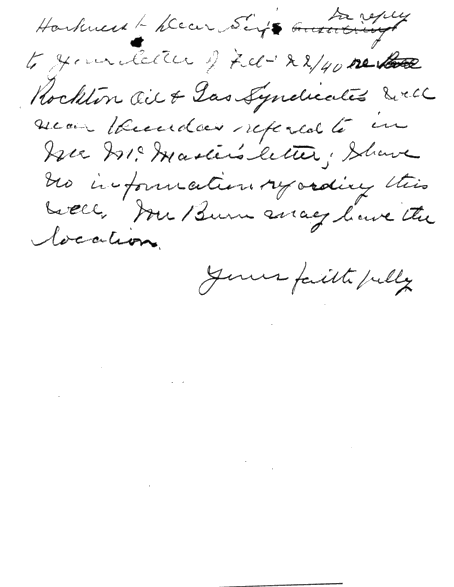 Harkness Dear Sir,
In reply
to your letter of Feb 22/40 re
Rockton Oil & Gas Syndicates well
near Dundas refered to in
Mr. McMaster's letter; I have
no information regarding this
well, Mr Burn may have the
location.
Yours faithfully